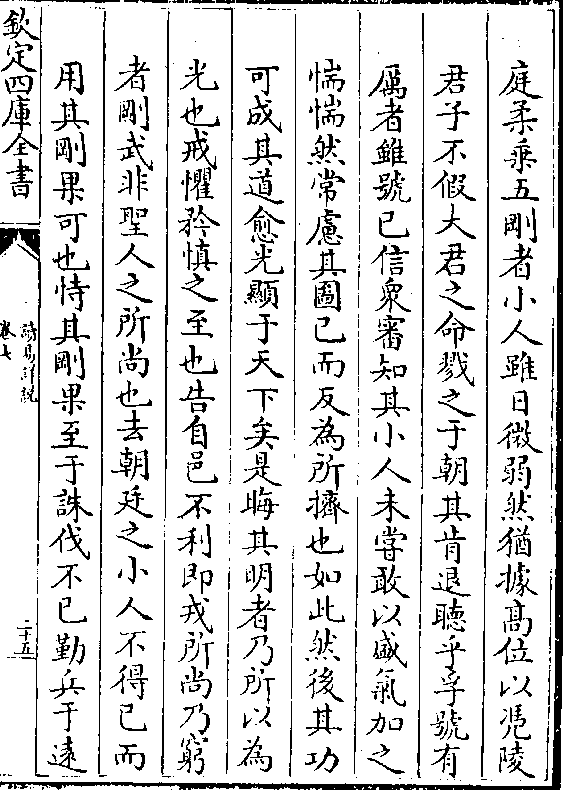 庭柔乗五剛者小人雖日微弱然猶據髙位以凴陵
君子不假大君之命戮之于朝其肯退聽乎孚號有
厲者雖號已信衆審知其小人未嘗敢以盛氣加之
惴惴然常慮其圖已而反為所擠也如此然後其功
可成其道愈光顯于天下矣是晦其明者乃所以為
光也戒懼矜慎之至也告自邑不利即戎所尚乃窮
者剛武非聖人之所尚也去朝廷之小人不得已而
用其剛果可也恃其剛果至于誅伐不已勤兵于逺
欽定四庫全書
讀易詳說
卷七
二十五